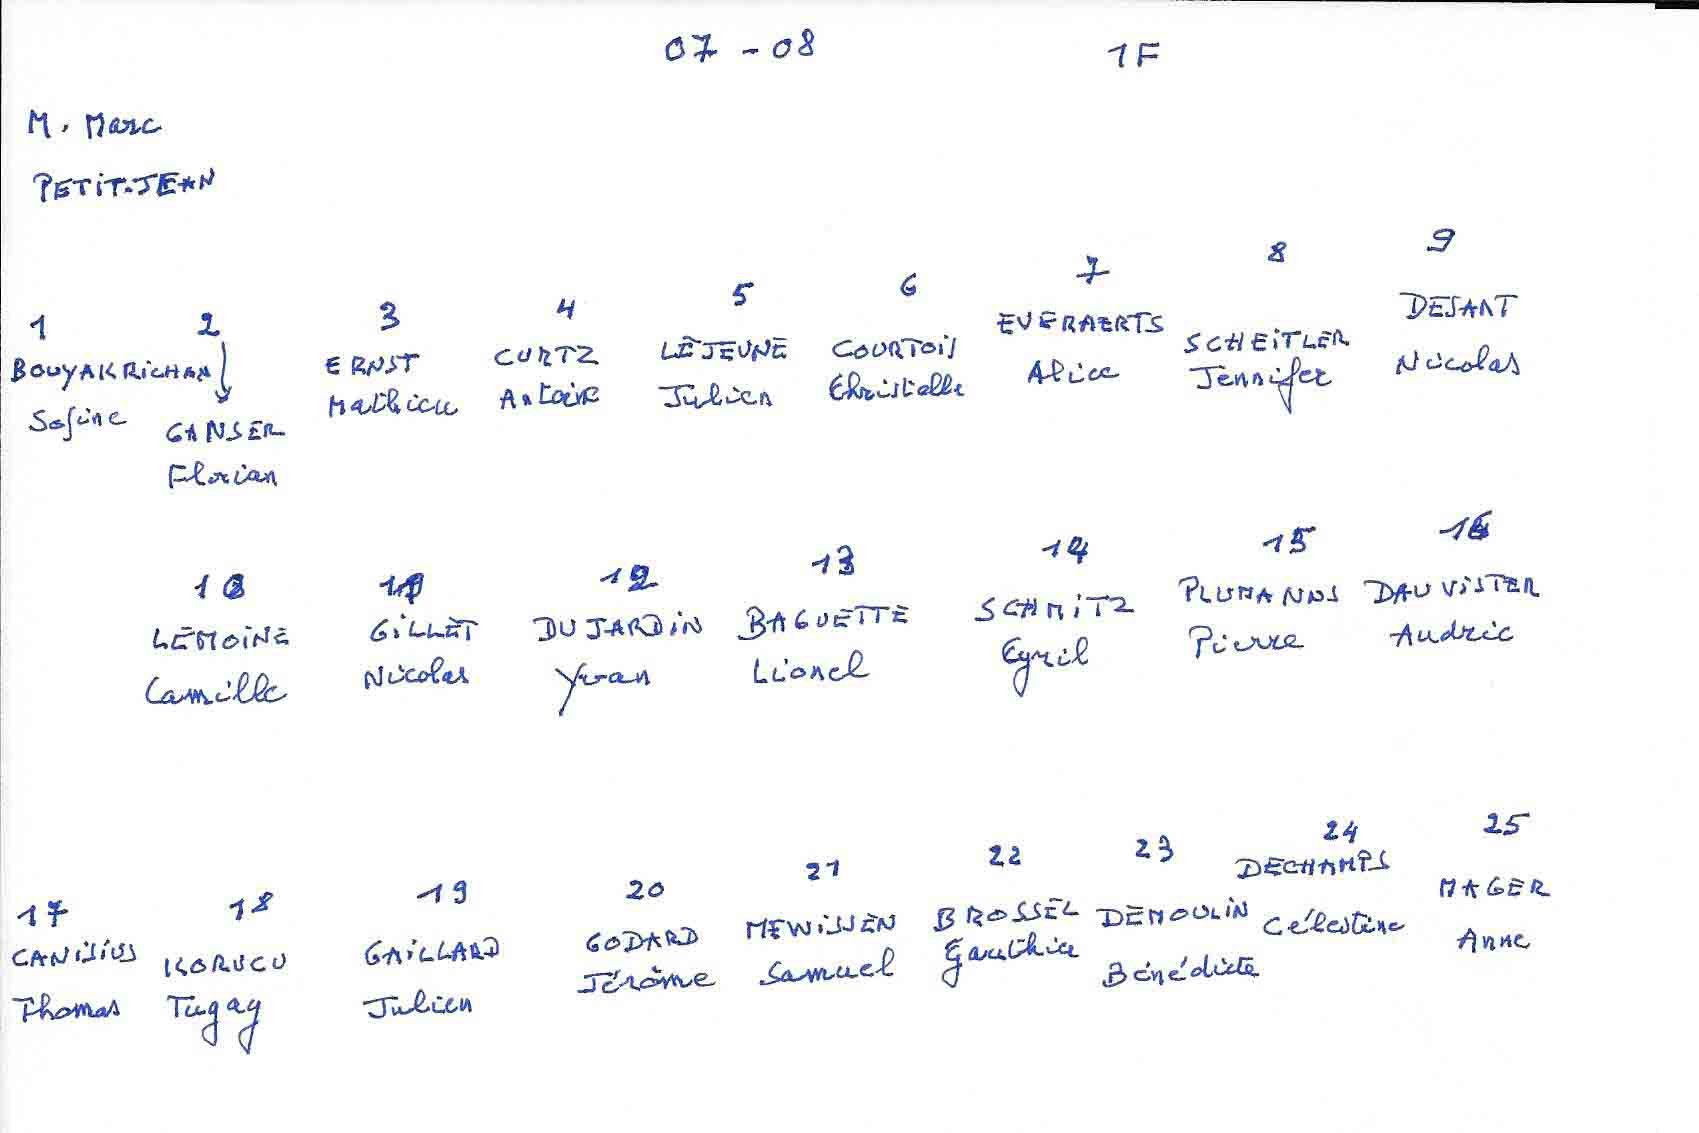 07 - 08 1F
M. Marc
PETIT-JEAN
1 2 3 4 5 6 7 8 9
BOUYAKRICHAN GANSER ERNST CURTZ LEJEUNE COURTOIS EVERAERTS SCHEITLER DESART
Sofine Florian Mathieu Antoine Julien Christelle Alice Jennifer Nicolas
10 11 12 13 14 15 16
LEMOINE GILLET DUJARDIN BAGUETTE SCHMITZ PLUMANNS DAUVISTER
Camille Nicolas Yvan Lionel Cyril Pierre Audric
17 18 19 20 21 22 23 24 25
CANISIUS KORUCU GAILLARD GODARD MEWISSEN BROSSEL DEMOULIN DECHAMPS MAGER
Thomas Tugay Julien Jérôme Samuel Gauthier Bénédicte Célestine Anne